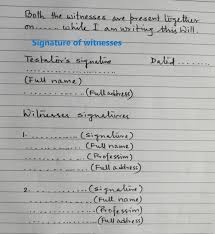 Both the witnesses are present together
on ...... while I am writing this Will.
Signature of witnesses
Testator's signature Dated ........
....................
(Full name)
.................... (Full address)
Witnesses signatures
1. .................. (signature)
.................. (Full name)
.................. (Profession)
.................. (Full address)
2. .................. (signature)
.................. (Full name)
.................. (Profession)
.................. (Full address)